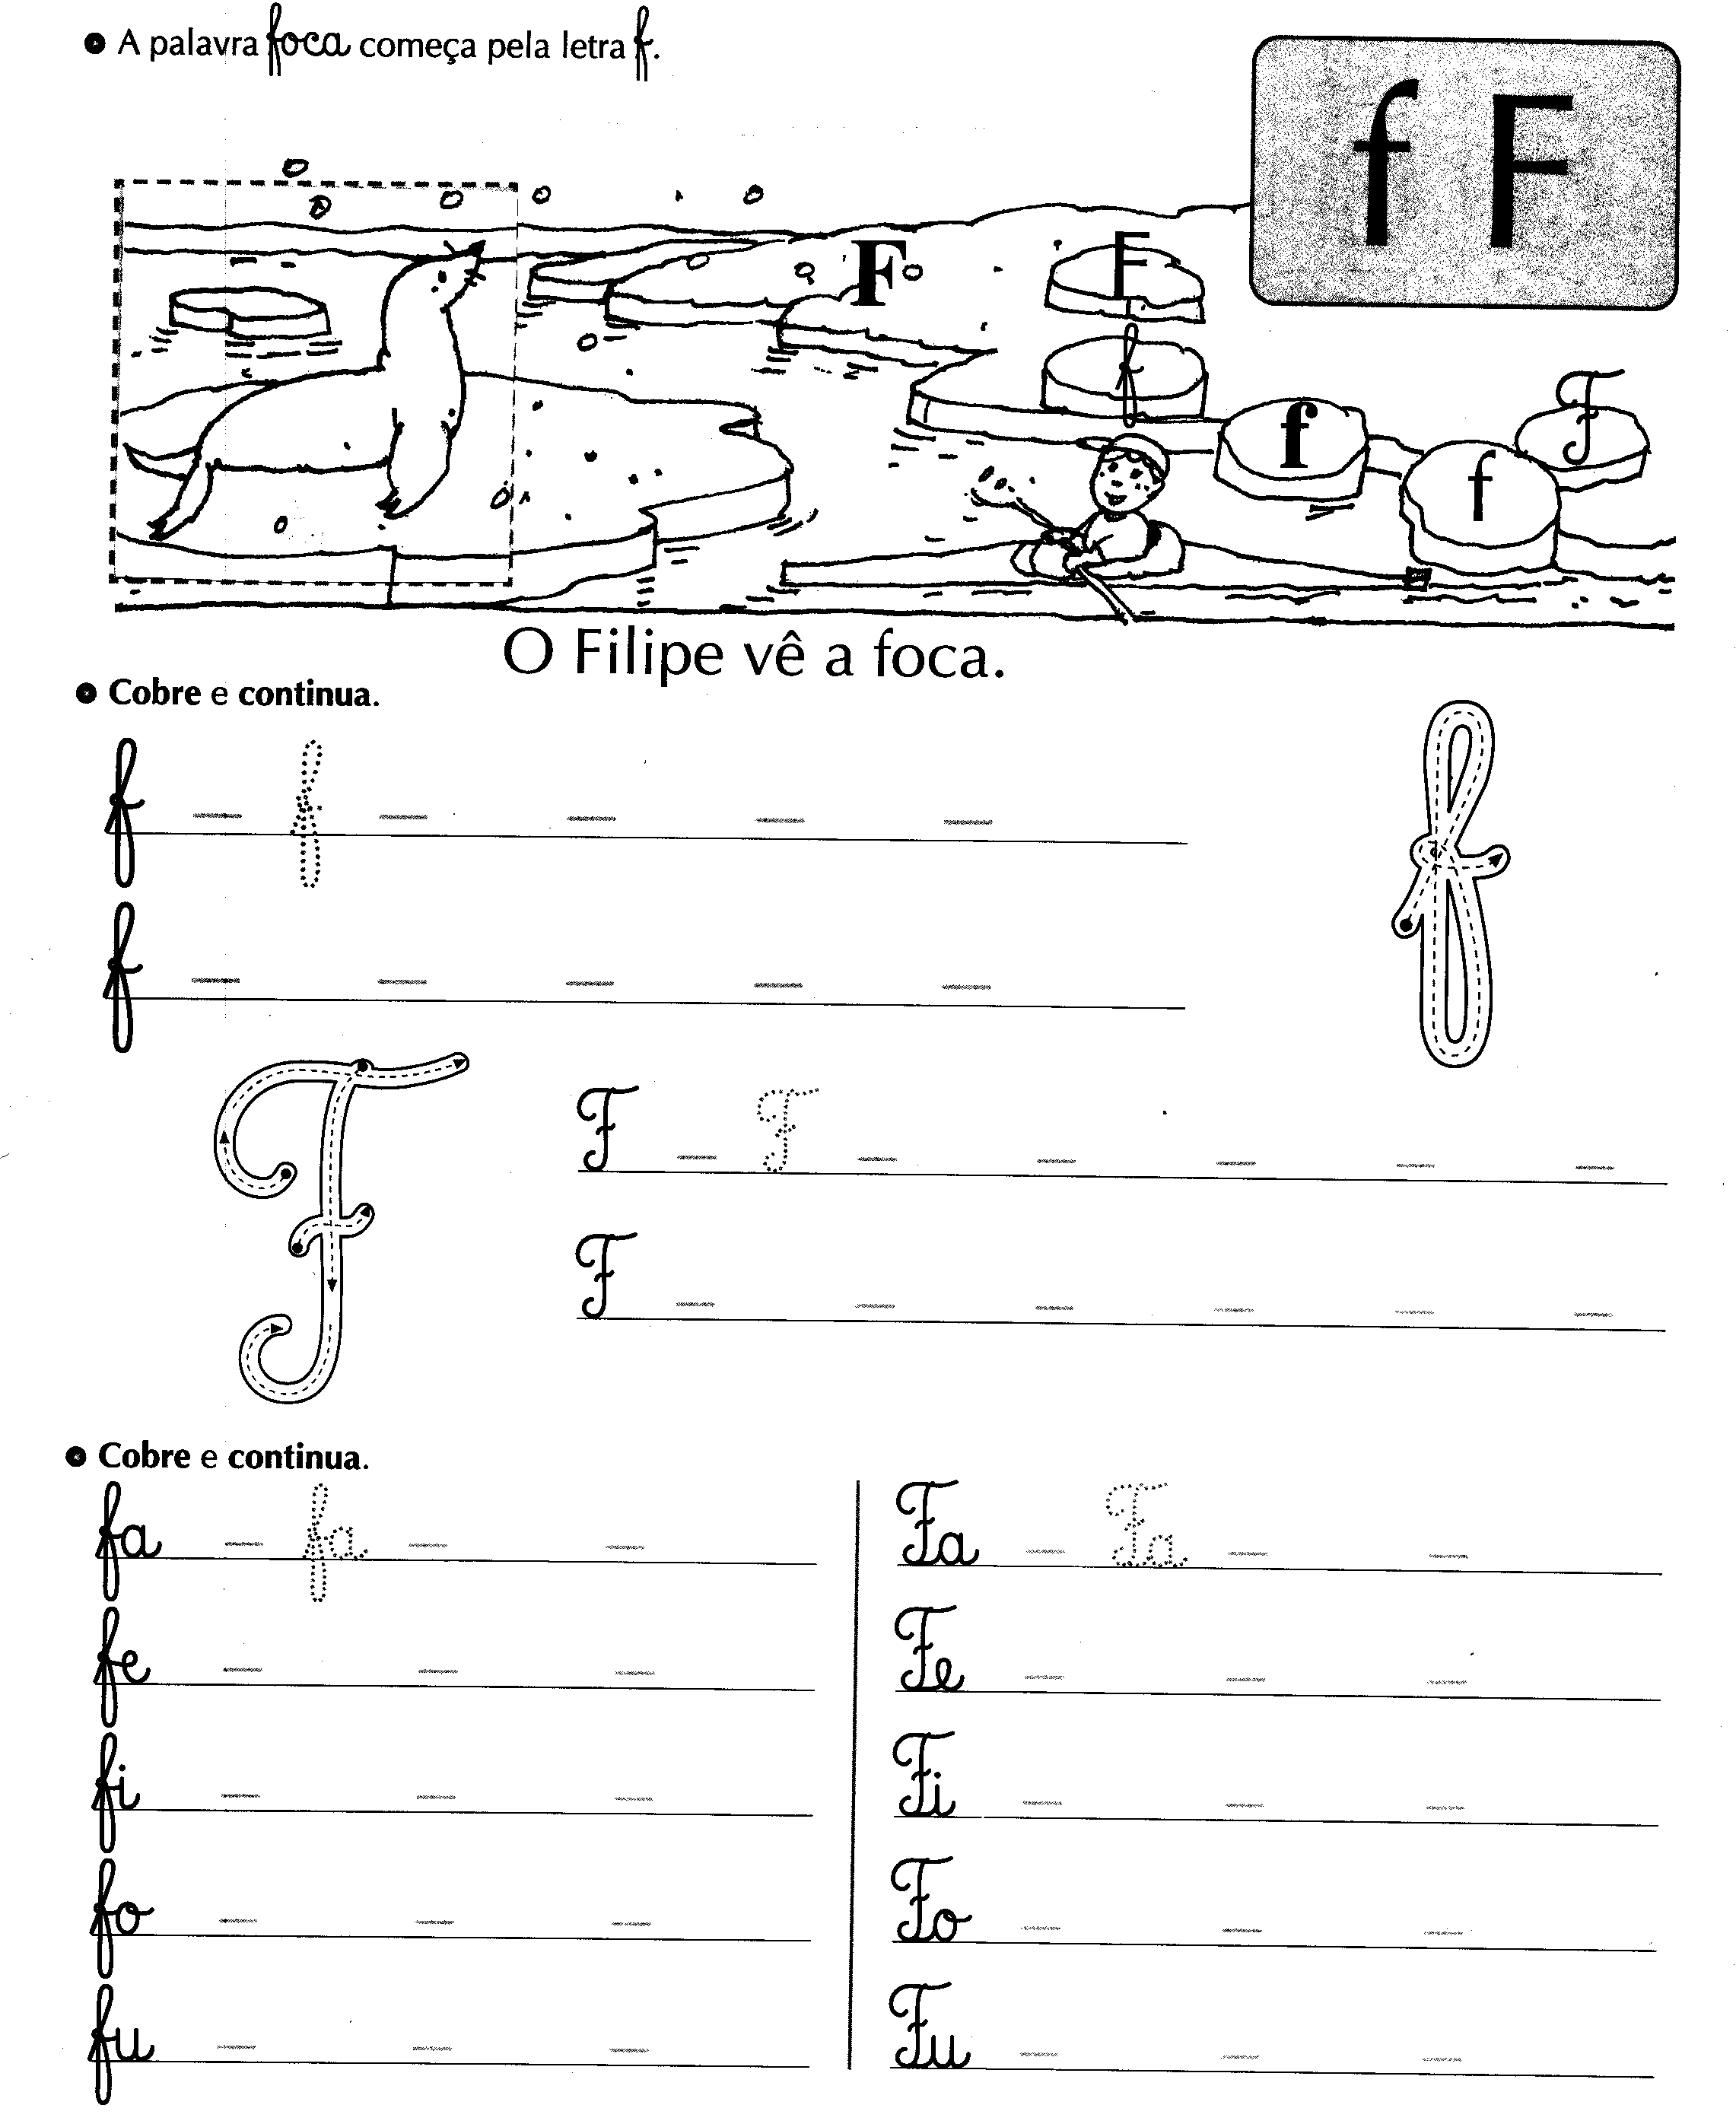 A palavra foca começa pela letra f.
f F
F F
f
f f F
O Filipe vê a foca.
Cobre e continua.
f f
f
F F
F
Cobre e continua.
fa fa
Fa Fa
fe
Fe
fi
Fi
fo
Fo
fu
Fu